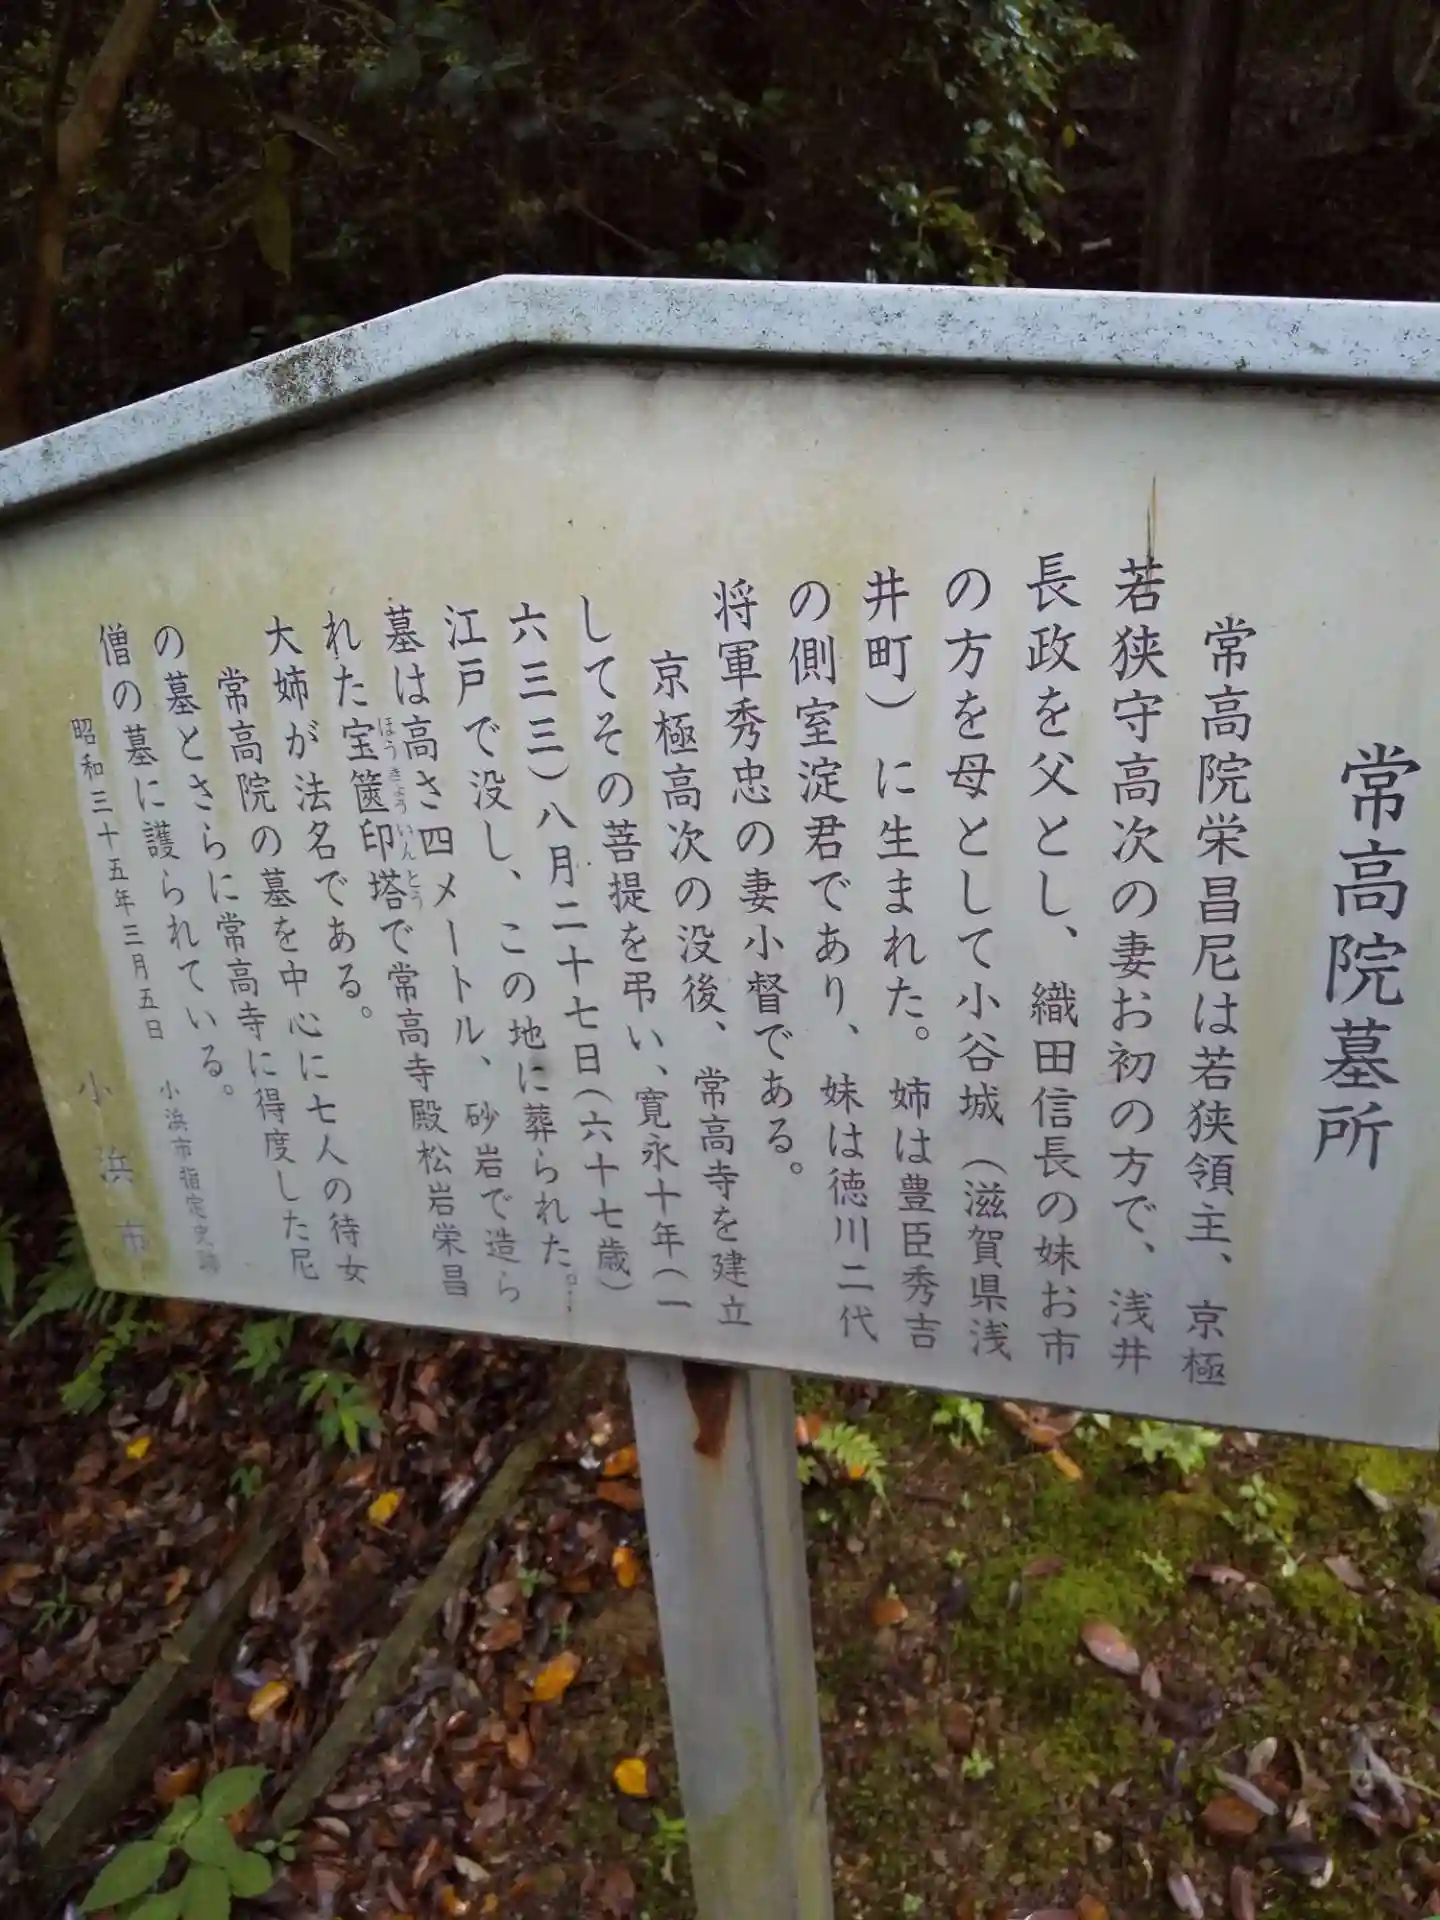 常高院墓所
常高院栄昌尼は若狭領主、京極
若狭守高次の妻お初の方で、浅井
長政を父とし、織田信長の妹お市
の方を母として小谷城（滋賀県浅
井町）に生まれた。姉は豊臣秀吉
の側室淀君であり、妹は徳川二代
将軍秀忠の妻小督である。
京極高次の没後、常高寺を建立
してその菩提を弔い、寛永十年（一
六三三）八月二十七日（六十七歳）
江戸で没し、この地に葬られた。
墓は高さ四メートル、砂岩で造ら
れた宝篋印塔で常高寺殿松岩栄昌
ほうきょういんとう
大姉が法名である。
常高院の墓を中心に七人の待女
の墓とさらに常高寺に得度した尼
僧の墓に護られている。
小浜市指定史跡
昭和三十五年三月五日
小浜市